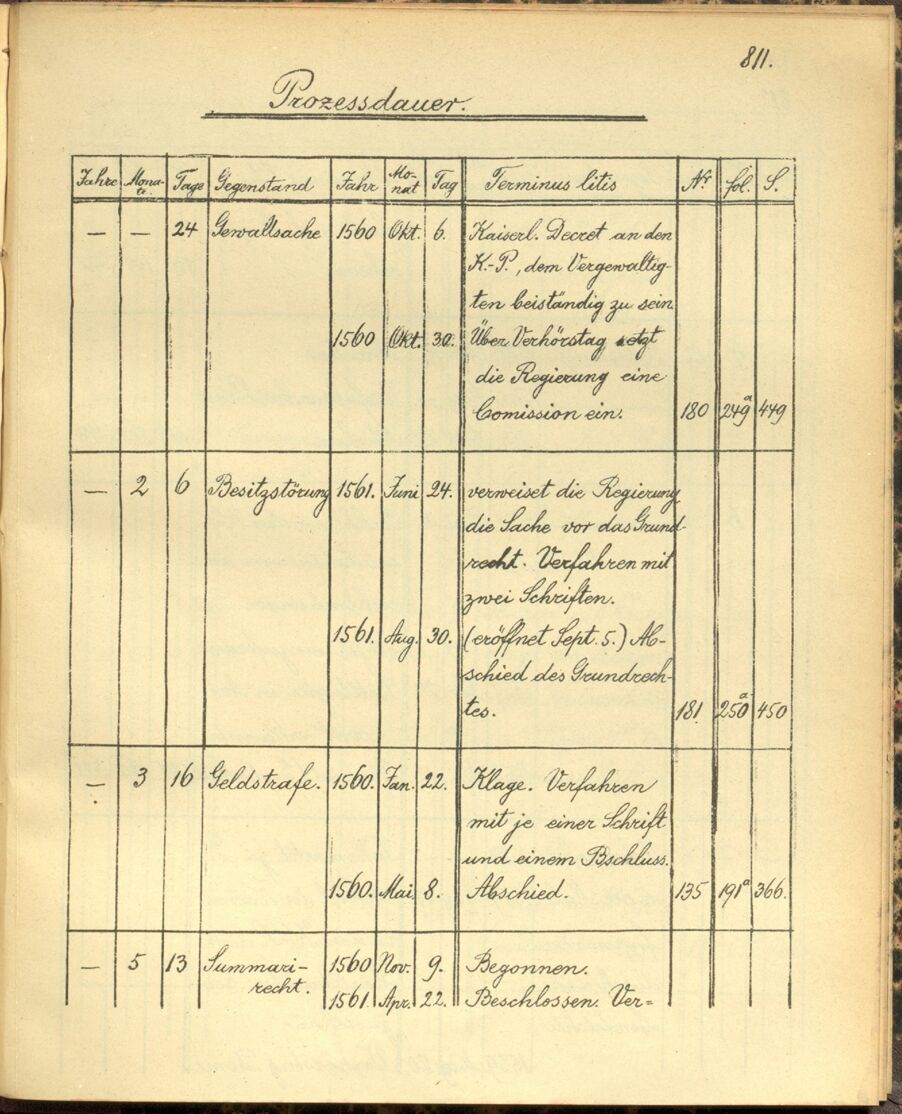 811.
Prozessdauer.
Jahre Mona- Tage Gegenstand Jahr Mo- Tag Terminus litis Nr. fol. S.
te. nat
— — 24 Gewaltsache 1560 Okt. 6. Kaiserl. Decret an den
K.-P., dem Vergewaltig-
ten beiständig zu sein.
1560 Okt. 30. Über Verhörstag setzt
die Regierung eine
Comission ein. 180 249a 449
— 2 6 Besitzstörung 1561. Juni 24. verweiset die Regierung
die Sache vor das Grund-
recht. Verfahren mit
zwei Schriften.
1561. Aug. 30. (eröffnet Sept. 5.) Ab-
schied des Grundrech-
tes. 181. 250a 450
— 3 16 Geldstrafe. 1560. Jan. 22. Klage. Verfahren
mit je einer Schrift
und einem Bschluss.
1560. Mai. 8. Abschied. 135 191a 366.
— 5 13 Summari- 1560 Nov. 9. Begonnen.
recht. 1561. Apr. 22. Beschlossen. Ver=